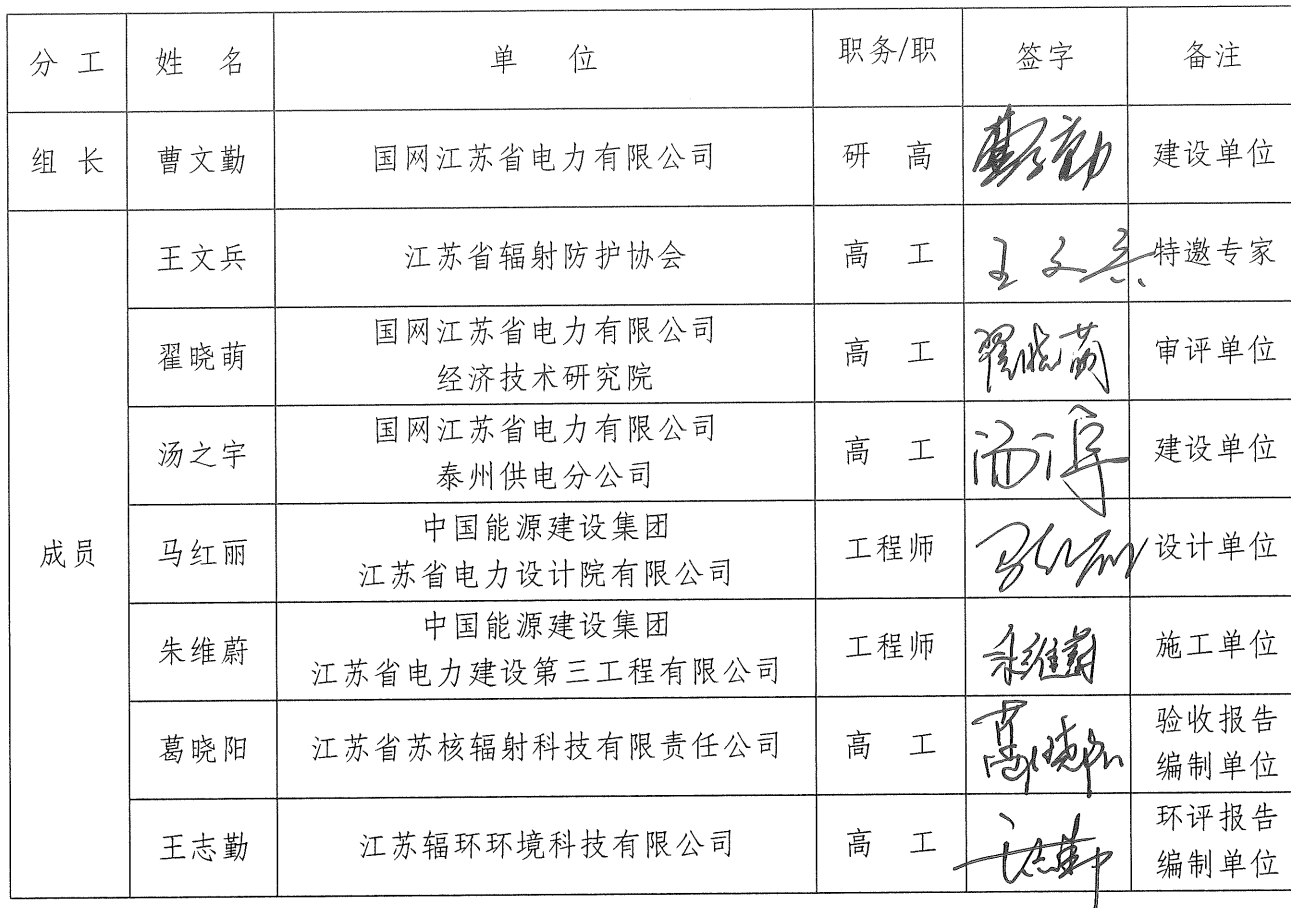 分 工 姓 名 单 位 职务/职 签字 备注
组 长 曹文勤 国网江苏省电力有限公司 研 高 曹文勤 建设单位
王文兵 江苏省辐射防护协会 高 工 王文兵 特邀专家
翟晓萌 国网江苏省电力有限公司
经济技术研究院 高 工 翟晓萌 审评单位
汤之宇 国网江苏省电力有限公司
泰州供电分公司 高 工 汤之宇 建设单位
成员 马红丽 中国能源建设集团
江苏省电力设计院有限公司 工程师 马红丽 设计单位
朱维蔚 中国能源建设集团
江苏省电力建设第三工程有限公司 工程师 朱维蔚 施工单位
葛晓阳 江苏省苏核辐射科技有限责任公司 高 工 葛晓阳 验收报告
编制单位
王志勤 江苏辐环环境科技有限公司 高 工 王志勤 环评报告
编制单位